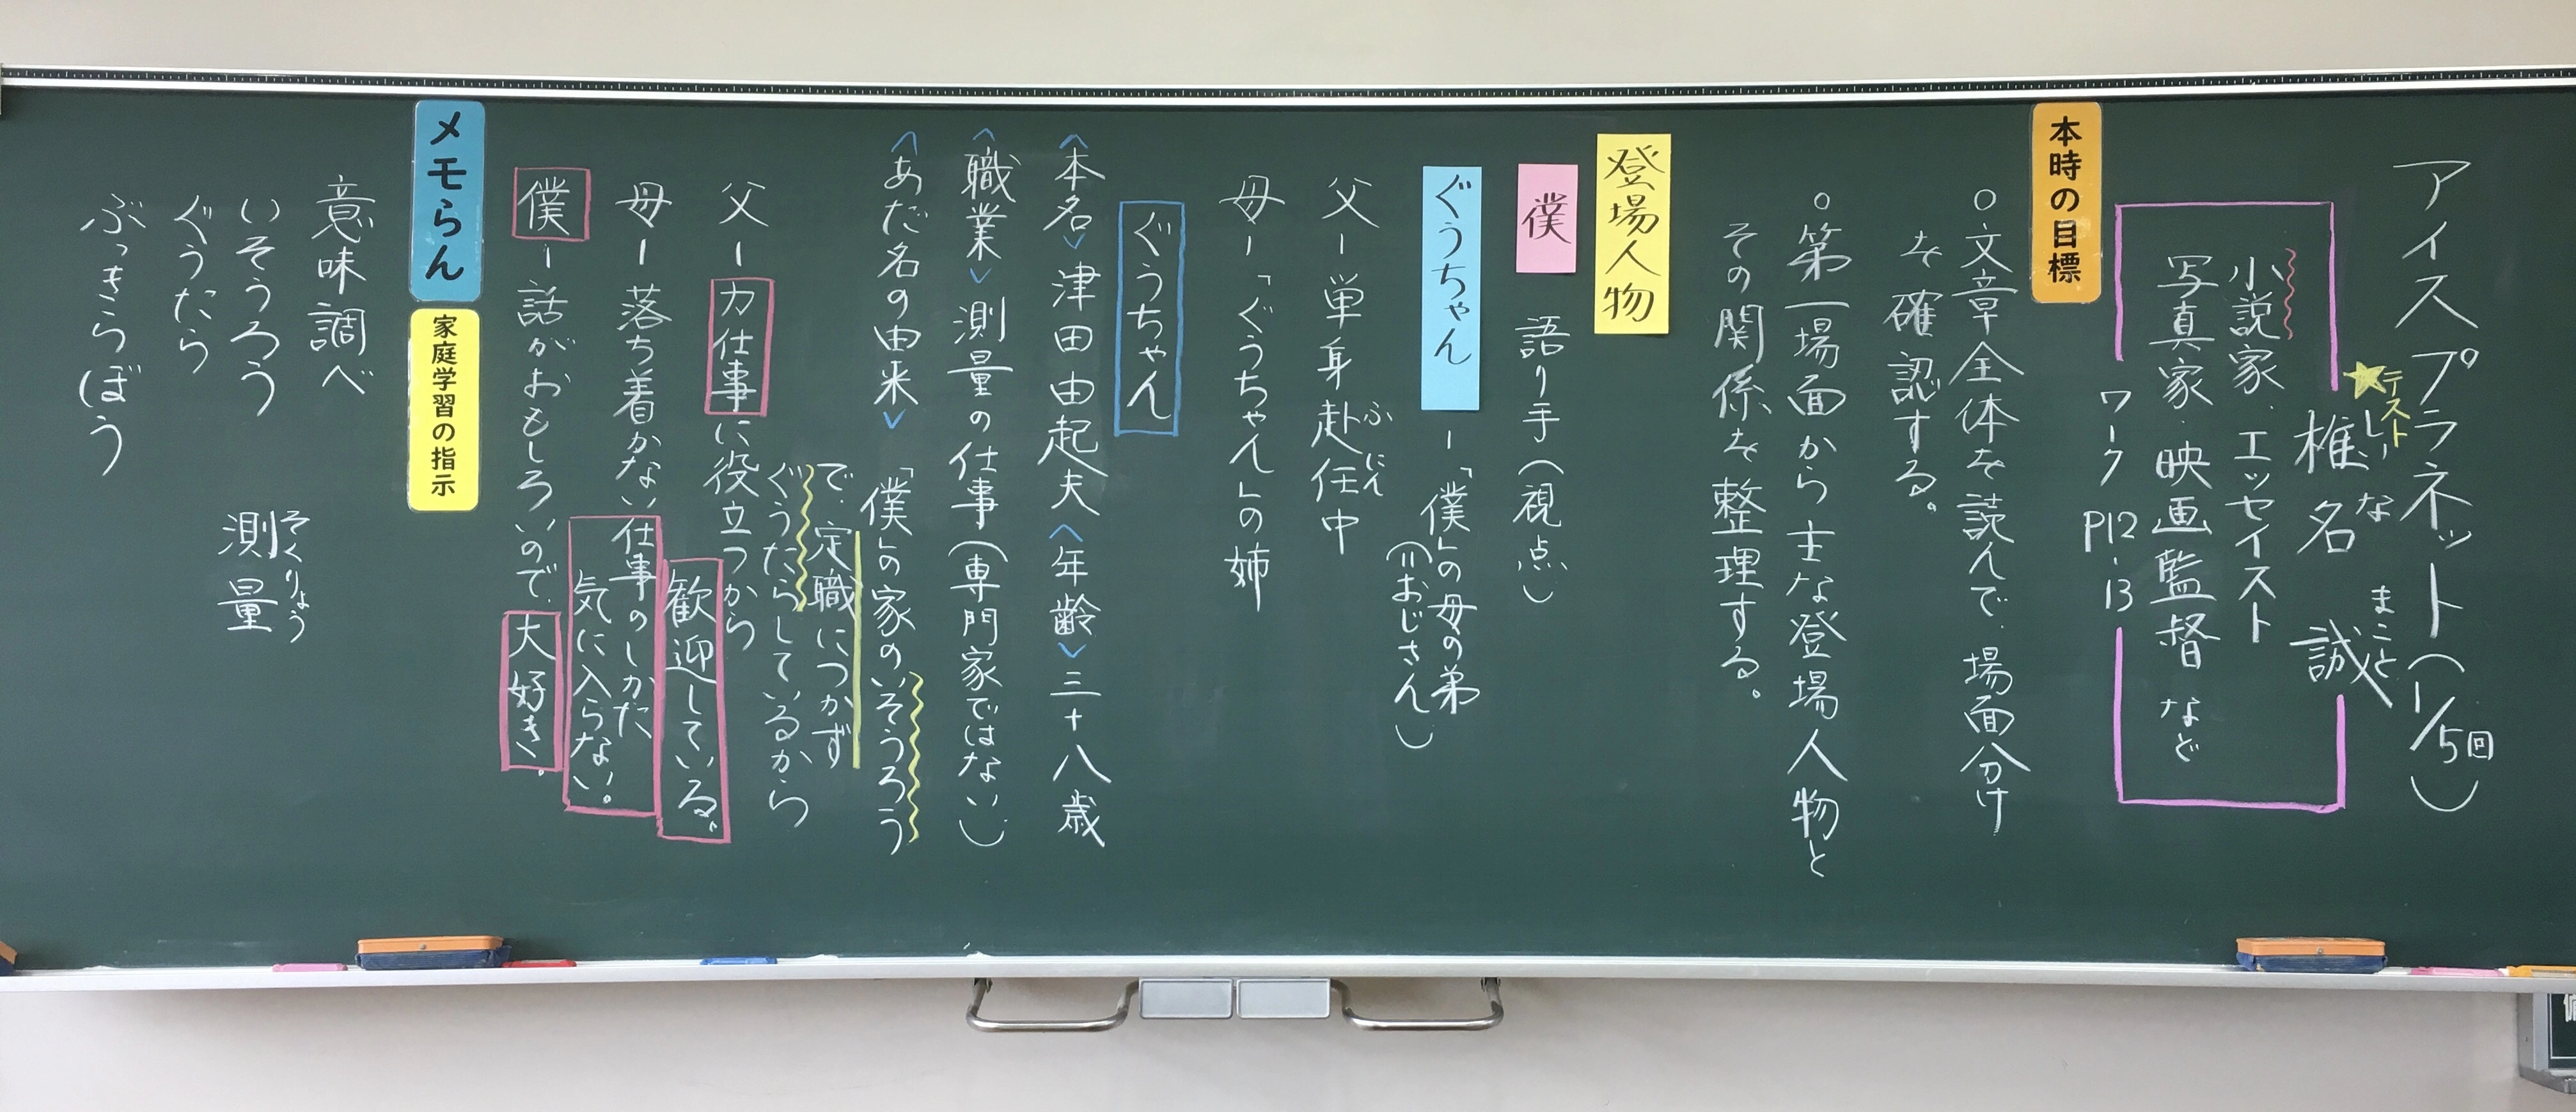 アイスプラネット（1/5回）
★テスト
しいな まこと
椎名 誠
小説家・エッセイスト
写真家・映画監督 など
ワーク P12・13
本時の目標
○文章全体を読んで、場面分け
を確認する。
○第一場面から主な登場人物と
その関係を整理する。
登場人物
僕 語り手（視点）
ぐうちゃん ー「僕」の母の弟
（＝おじさん）
父ー単身赴任中
ふにん
母ー「ぐうちゃん」の姉
ぐうちゃん
〈本名〉津田由起夫〈年齢〉三十八歳
〈職業〉測量の仕事（専門家ではない）
〈あだ名の由来〉「僕」の家のいそうろう
で、定職につかず
ぐうたらしているから
父ー力仕事に役立つから
歓迎している。
母ー落ち着かない仕事のしかた
気に入らない。
僕ー話がおもしろいので、大好き。
メモらん
家庭学習の指示
意味調べ
いそうろう
ぐうたら
ぶっきらぼう
そくりょう
測量